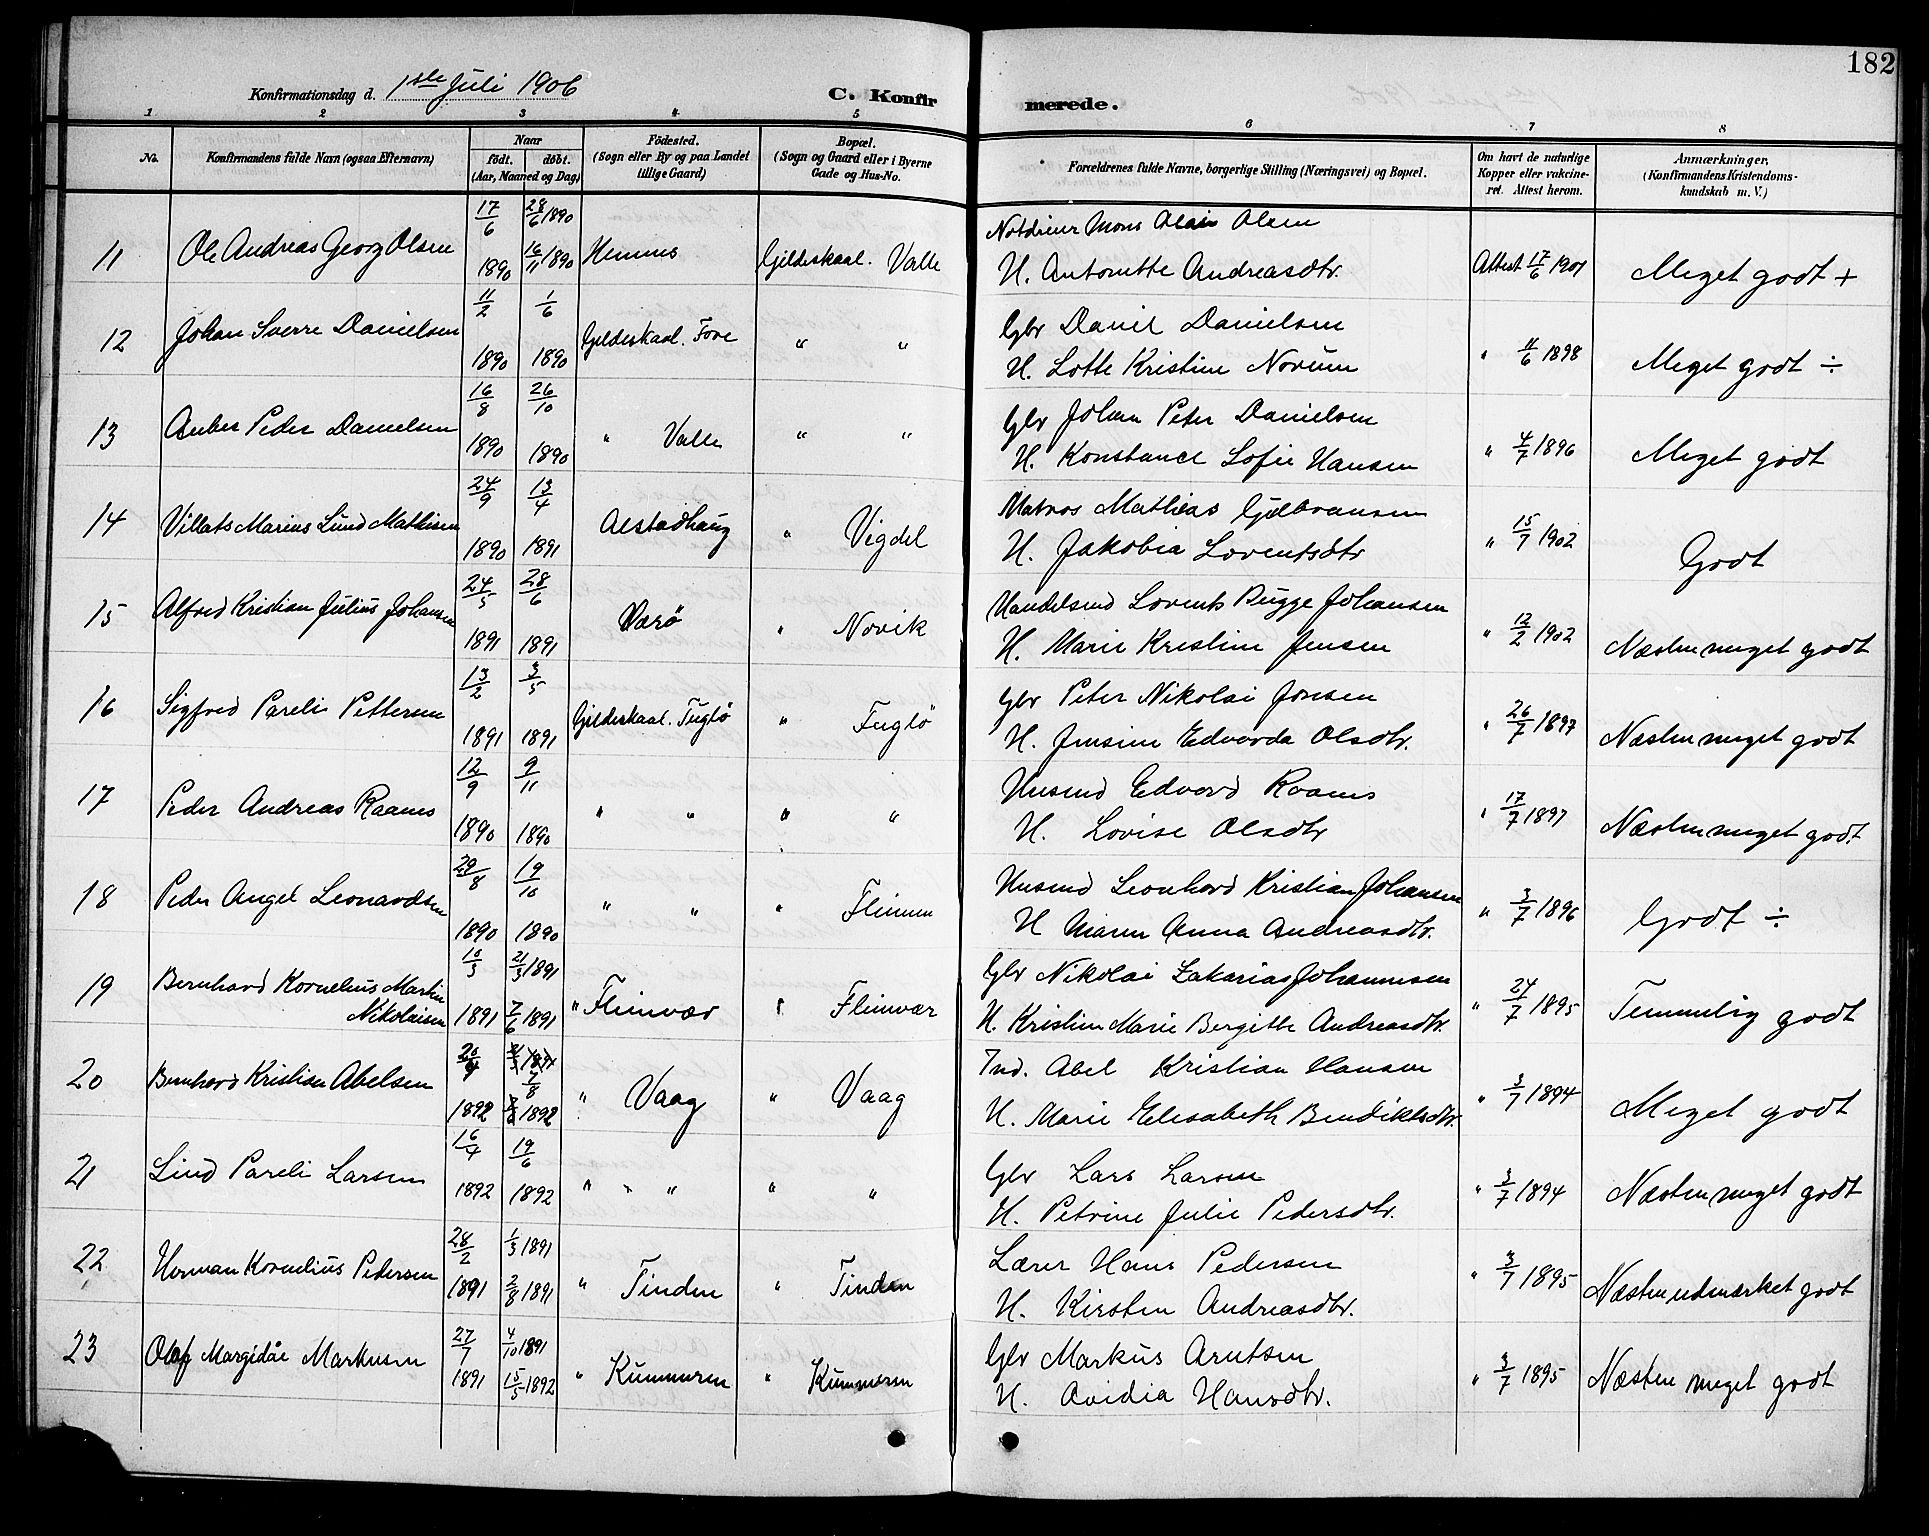 182
Konfirmationsdag d. 1ste Juli 1906
C. Konfirmerede.
1 2 3 4 5 6 7 8
No. Konfirmandens fulde Navn (ogsaa Efternavn) Naar født. døbt. (Aar, Maaned og Dag) Fødested. (Sogn eller By og paa Landet tillige Gaard) Bopæl. (Sogn og Gaard eller i Byerne Gade og Hus-No. Forældrenes fulde Navne, borgerlige Stilling (Næringsvei) og Bopæl. Om havt de naturlige Kopper eller vakcineret. Attest herom. Anmærkninger, (Konfirmandens Kristendomskundskab m. V.)
11 Ole Andreas Georg Olsen 17/6 1890 28/6 1890 16/11 1890 Hemnes Gildeskaal. Valle Mons Olsen
H. Antonette Andreasdtr. Attest 17/6 1901 Meget godt +
12 Johan Sverre Danielsen 11/2 1890 1/6 1890 Gildeskaal. Fore " " Gbr Daniel Danielsen
H. Lotte Kristine Norum " 11/6 1898 Meget godt ÷
13 Anber Peder Danielsen 16/8 1890 26/10 1890 " Valle " " Gbr Johan Peter Danielsen
H. Konstance Sofie Hansen " 4/7 1896 Meget godt
14 Villats Marius Lund Mathisen 24/9 1890 13/4 1891 Alstadhaug " Vigdel Matros Mathias Gulbransen
H. Jakobia Lorentsdtr " 15/7 1902 Godt
15 Alfred Kristian Julius Johansen 24/5 1891 28/6 1891 Værø " Novik Handelsmd Lorents Bugge Johansen
H. Marie Kristine Jensen " 12/2 1902 Næsten meget godt
16 Sigfred Pareli Pettersen 13/2 1891 3/5 1891 Gildeskaal. Fuglø " Fuglø Gbr Peter Nikolai Jonsen
H. Jensine Edvarda Olsdtr. " 26/7 1897 Næsten meget godt
17 Peder Andreas Raanes 12/9 1890 9/11 1890 " " " " Husmd Edvard Raanes
H. Lovise Olsdtr " 17/7 1897 Næsten meget godt.
18 Peder Angel Leonardsen 29/8 1890 19/10 1890 " " " Fleinvær Husmd Leonhard Kristian Johansen
H Maren Anna Andreasdtr. " 3/7 1896 Godt ÷
19 Bernhard Kornelius Martin Nikolaisen 10/3 1891 21/3 1891 7/6 1891 " Fleinvær " Fleinvær Gbr Nikolai Zakarias Johannesen
H. Kristine Marie Bergitte Andreasdtr. " 24/7 1895 Temmelig godt
20 Bernhard Kristian Abelsen 20/4 1892 7/8 1892 " Vaag " Vaag Ind. Abel Kristian Hansen
H. Marie Elisabeth Bendiktsdtr. " 3/7 1894 Meget godt
21 Lind Pareli Larsen 16/4 1892 19/6 1892 " " " " Gbr Lars Larsen
H. Petrine Julie Pedersdtr. " 3/7 1894 Næsten meget godt
22 Herman Kornelius Pedersen 28/2 1891 1/3 1891 2/8 1891 " Tinden " Tinden Lærer Hans Pedersen
H. Kirsten Andreasdtr. " 3/7 1895 Næsten udmærket godt
23 Olaf Margidåe Markusen 27/7 1891 4/10 1891 15/5 1892 " Kunnuren " Kunneren Gbr Markus Arntsen
H. Ovidia Hansdtr. " 3/7 1895 Næsten meget godt